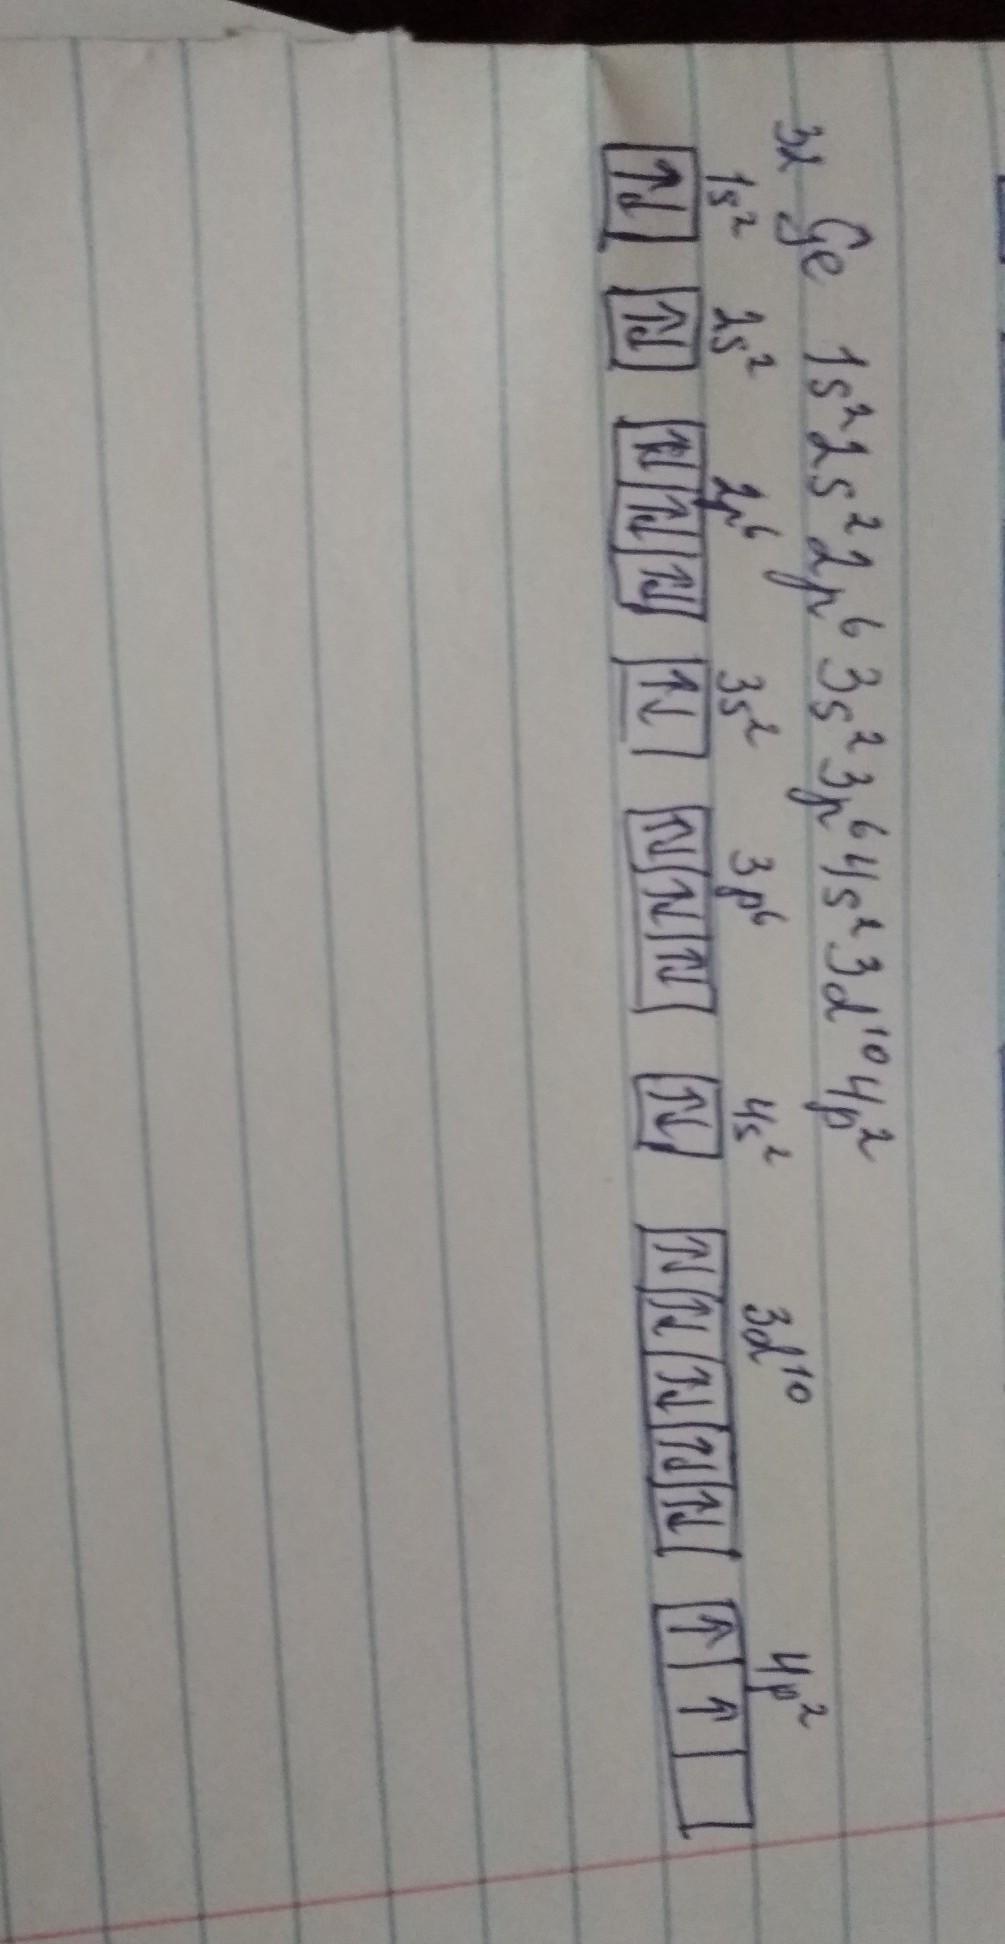 32 Ge 1s² 2s² 2p⁶ 3s² 3p⁶ 4s² 3d¹⁰ 4p²
1s² 2s² 2p⁶ 3s² 3p⁶ 4s² 3d¹⁰ 4p²
↑↓ ↑↓ ↑↓ ↑↓ ↑↓ ↑↓ ↑↓ ↑↓ ↑↓ ↑↓ ↑↓ ↑↓ ↑↓ ↑↓ ↑↓ ↑ ↑